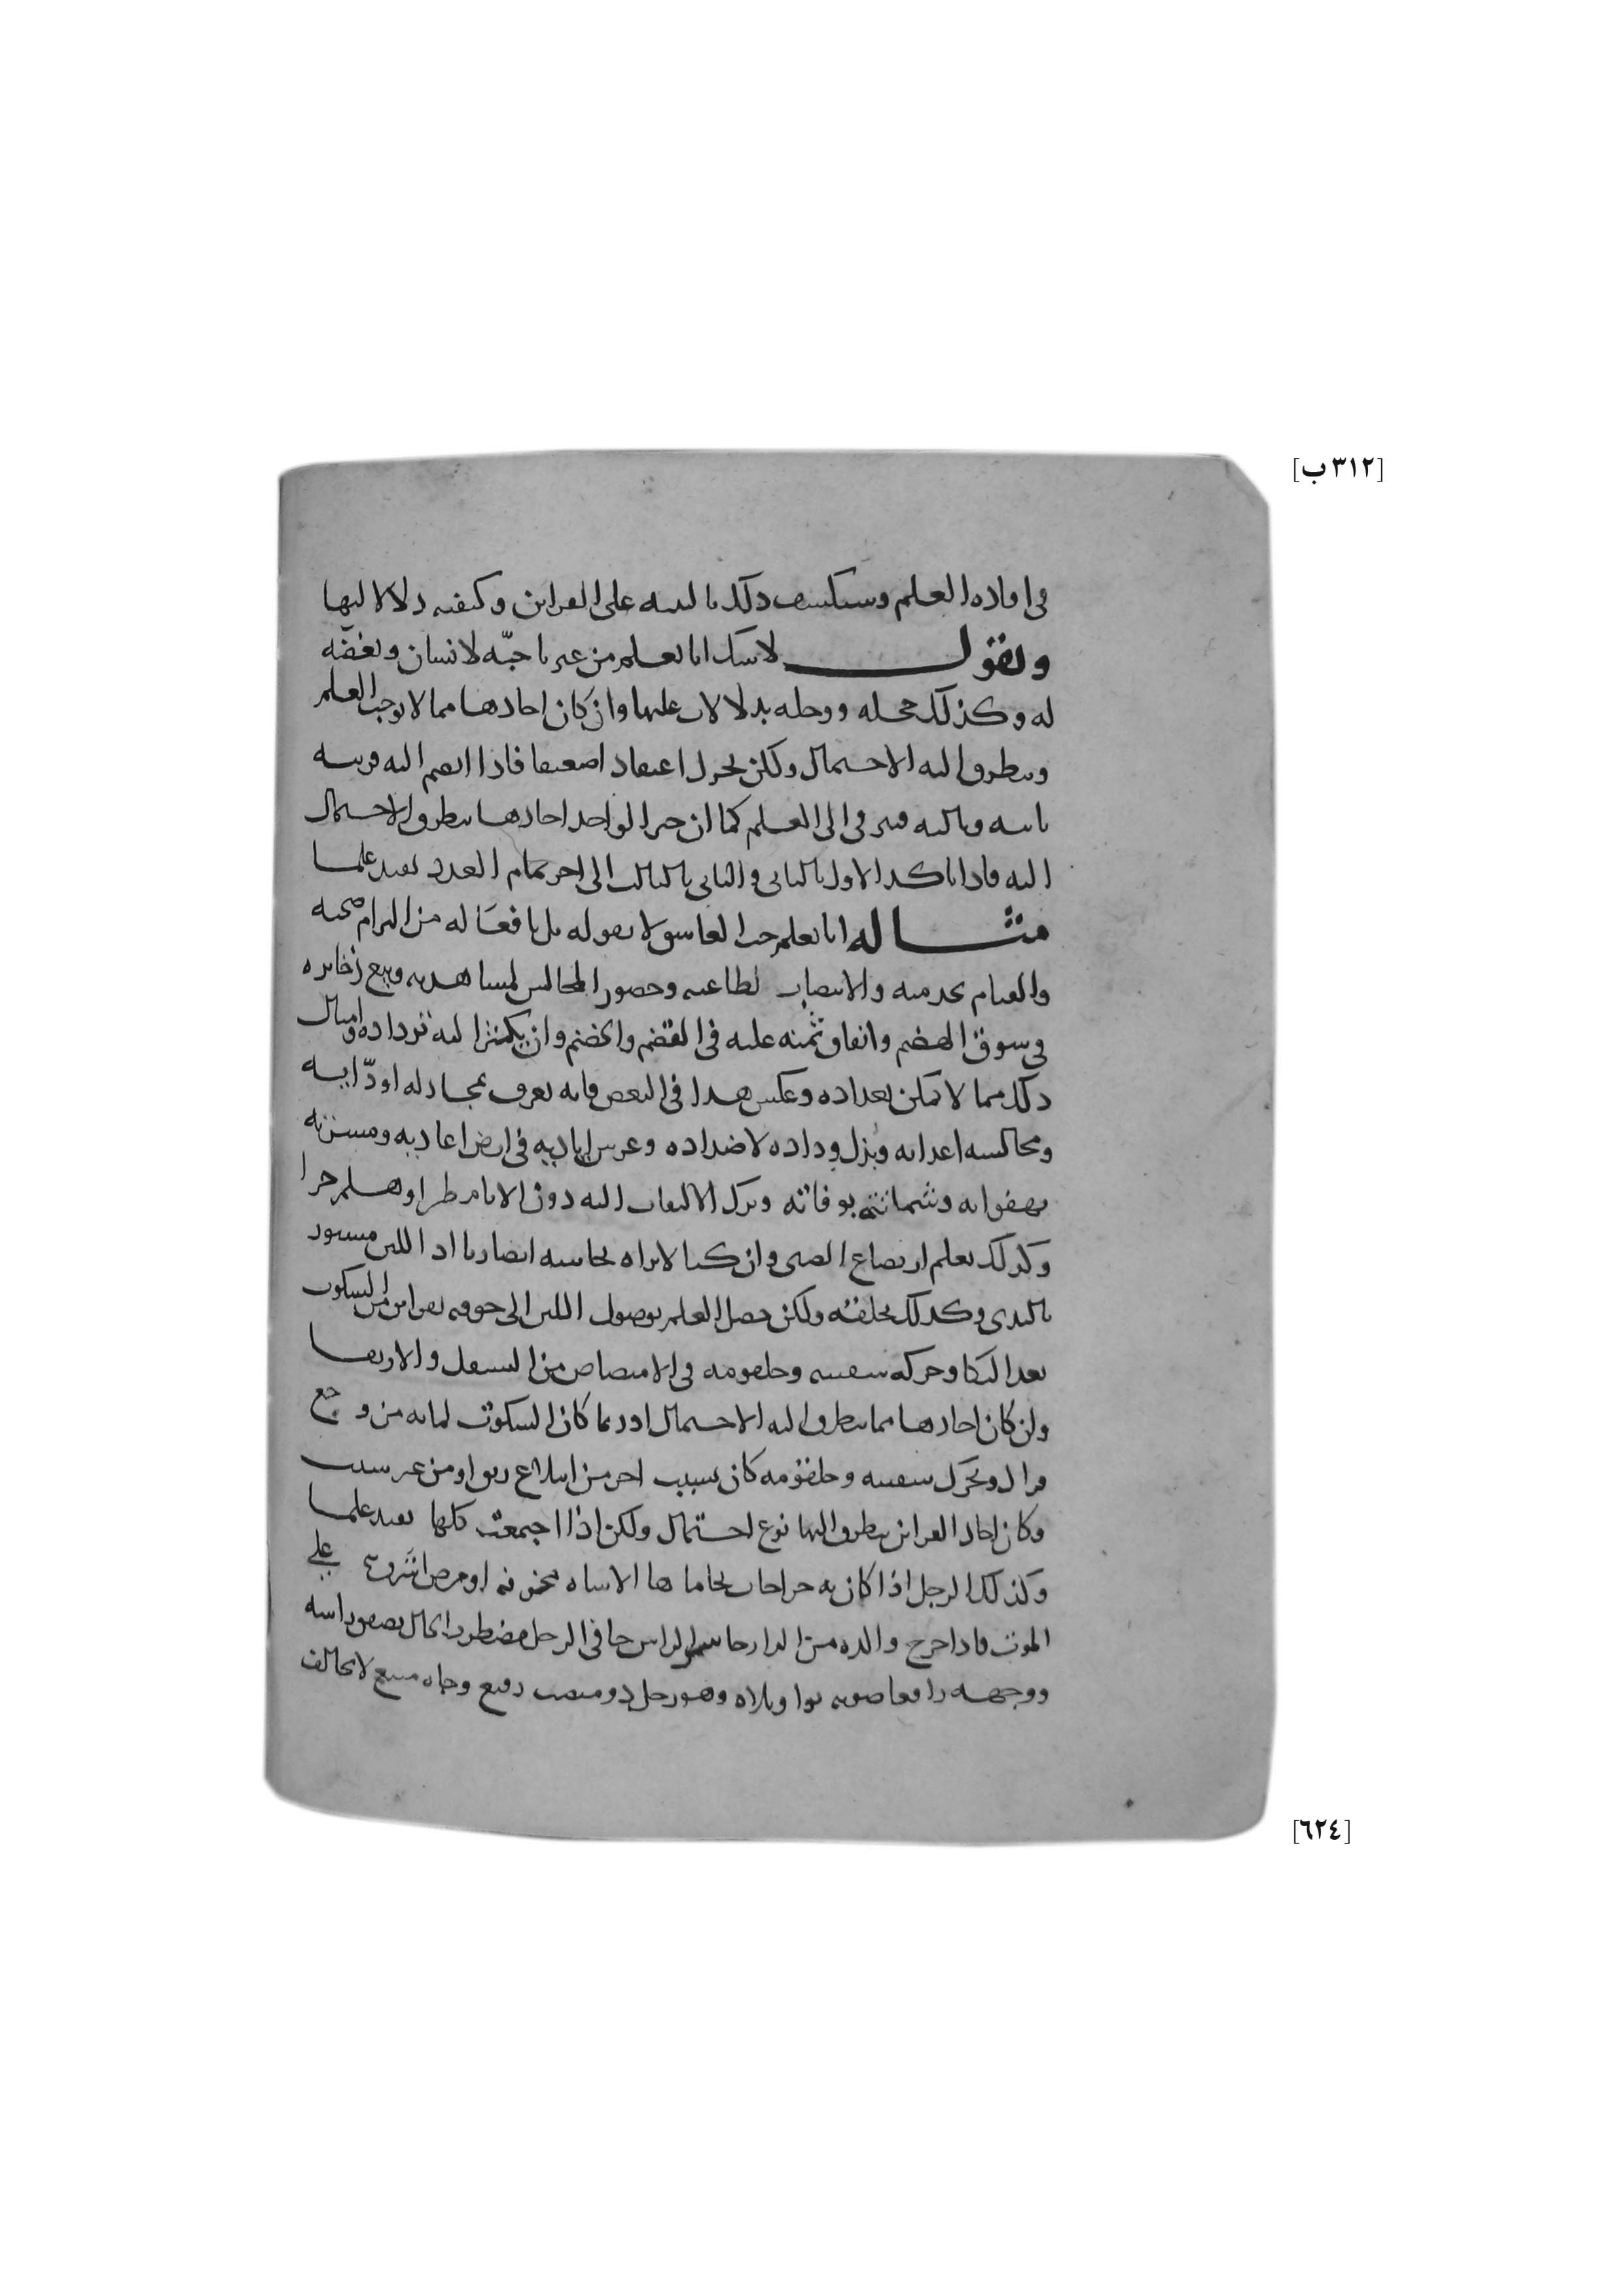 [٣١٢ ب]
في افاده العلم وسنكشف ذلك بالتنبيه على القراين وكيفيه دلالاتها
ونقول لا شك انا نعلم من غيرنا حبّه لانسان وبغضه
له وكذلك خجله ووجله بدلالات عليها وان كان احادها مما لا توجب العلم
ويتطرق اليه الاحتمال ولكن يحرك اعتقادا ضعيفا فاذا انضم اليه قرينه
ثانيه وثالثه فيرقى الى العلم كما ان خبر الواحد احادها يتطرق الاحتمال
اليه فاذا تاكد الاول بالثاني والثاني بالثالث الى اخر تمام العدد يفيد علما
مثاله انا نعلم حب العاشق لا بقوله بل بافعاله من التزام صحبته
والقيام بخدمته والانتصاب لطاعته وحضور المجالس لمشاهدته وبيع ذخايره
في سوق الهضم وانفاق ثمنه عليه في القضم والخضم وان يكثر اليه ترداده وامثال
ذلك مما لا يمكن تعداده وعكس هذا في البغض فانه يعرف بمجادله اودّايه
ومجالسه اعدايه وبذل وداده لاضداده وغرس اياديه في ارض اعاديه ومسرته
بهفواته وشماتته بوفاته وترك الالتفات اليه دون الانام طرا وهلم جرا
وكذلك نعلم ارتضاع الصبي وان كنا لا نراه بحاسه ابصارنا اذ اللبن مستور
بالثدي وكذلك بحلقه ولكن حصل العلم بوصول اللبن الى جوفه بقراين من السكوت
بعد البكا وحركه شفتيه وحلقومه في الامتصاص من التسفل والارتفا
وان كان احادها مما يتطرق اليه الاحتمال اذ ربما كان السكوت لما به من وجع
فزال وتحرك شفتيه وحلقومه كان بسبب اخر من ابتلاع ريق او من غير سبب
وكان احاد القراين يتطرق اليها نوع احتمال ولكن اذا اجتمعت كلها يفيد علما
وكذلك الرجل اذا كان به جراحات مخوفه او مرض اشرف على
الموت فاذا خرج والده من الدار حاسر الراس حافي الرجل مضطرب الحال يصفق راسه
ووجهه رافعا صوته واويلاه وهو رجل ذو منصب رفيع وجاه منيع لا يخالف
[٦٢٤]